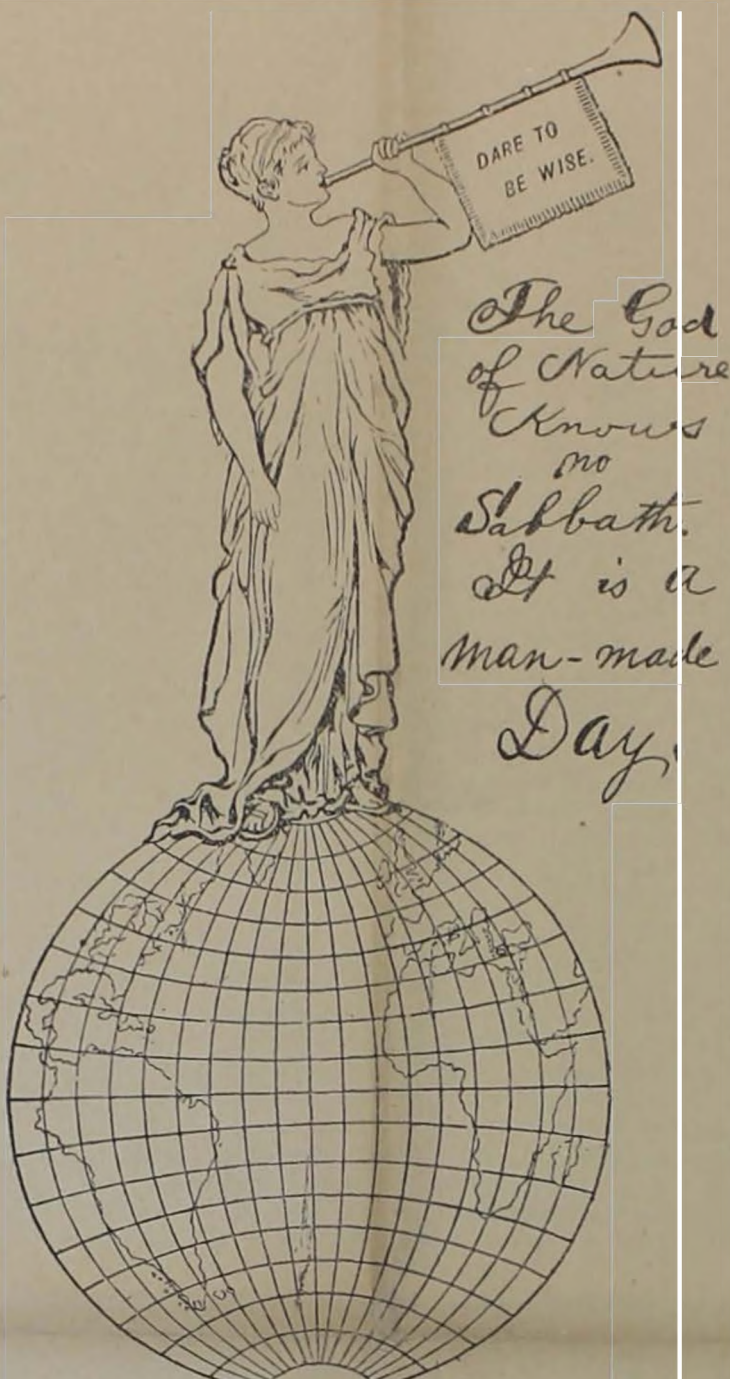 DARE TO
BE WISE.
The God
of Nature
Knows
no
Sabbath.
It is a
man-made
Day.